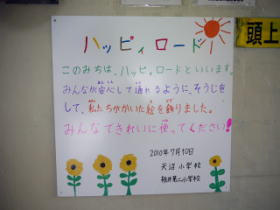 ハッピィロード
このみちは、ハッピィロードといいます。
みんなが安心して通れるように、そうじを
して、私たちがかいた絵を飾りました。
みんなできれいに使ってください!
2010年7月10日
天沼小学校
桃井第二小学校
頭上